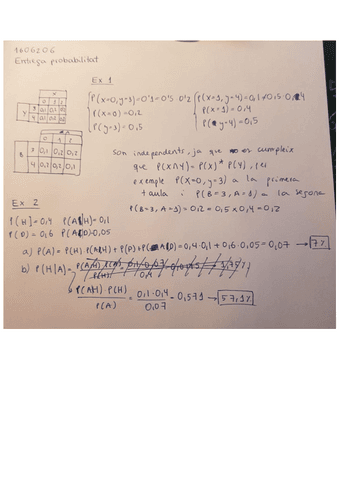 1606206
Entrega probabilitat
Ex 1
X
0 1 2
Y
3
4
P(X=0)=0,2
P(y=3)=0,5
P(x=1)=0,4
P(y=4)=0,5
B
3 0,1 0,2 0,2
4 0,1
Són independents, ja que es cumpleix
que P(X∩Y)=P(X)*P(Y), per
exemple P(X=0, y=3) a la primera
taula i P(B=3, A=1) a la segona
P(B=3, A=1)=0,2=0,5×0,4=0,2
Ex 2
P(H)=0,4 P(A|H)=0,1
P(D)=0,6 P(A|D)=0,05
a) P(A)=P(H) P(A|H)+P(D) P(A|D)=0,4·0,1+0,6·0,05=0,07 → 7%
b) P(H|A)=
P(AH) P(H) / P(A) = 0,1·0,4 / 0,07 = 0,571 → 57,1%